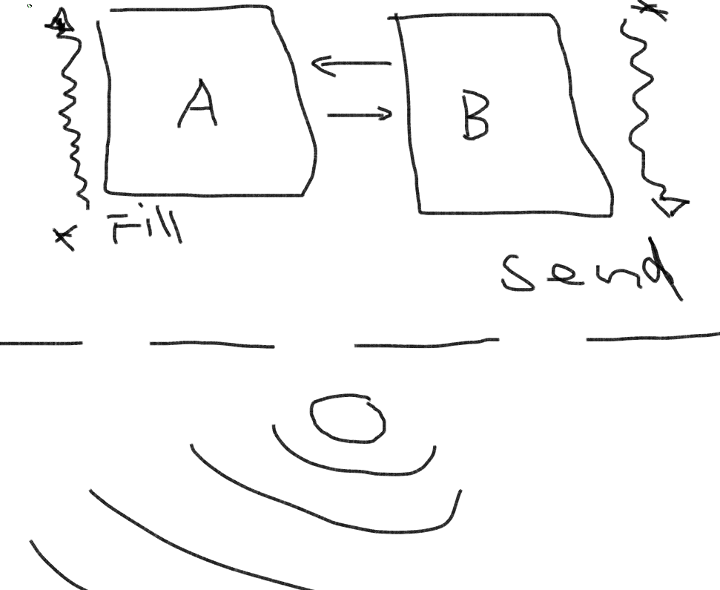 A
B
Fill
Send